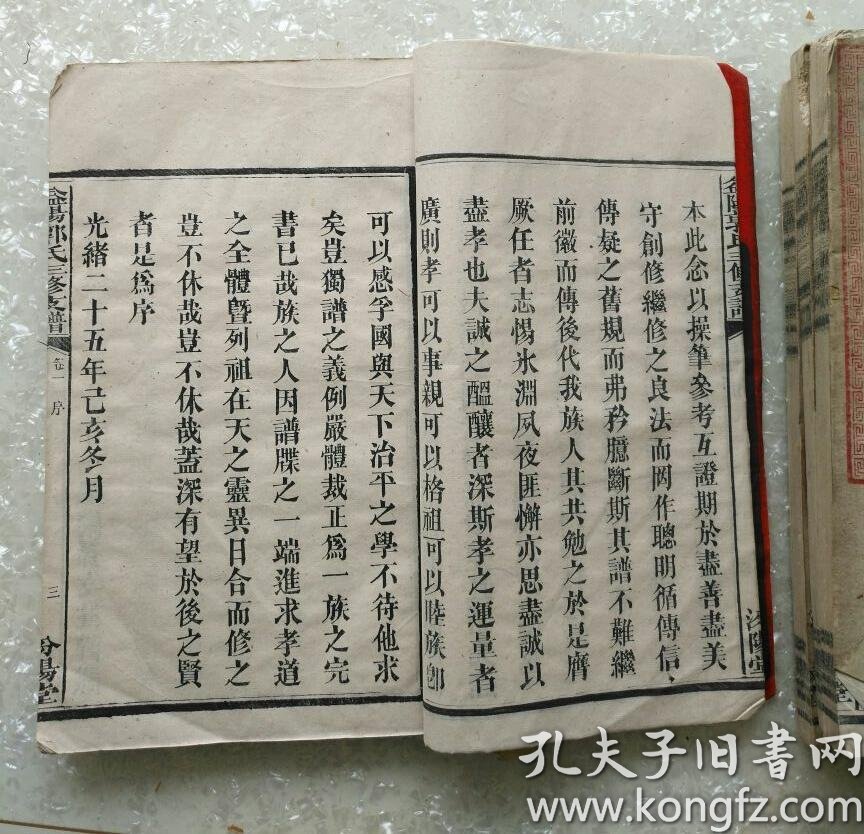 益陽郭氏三修支譜
汾陽堂
本此念以操筆參考互證期於盡善盡美
守創修繼修之良法而罔作聰明循傳信、
傳疑之舊規而弗矜臆斷斯其譜不難繼
前徽而傳後代我族人其共勉之於是膺
厥任者志惕氷淵夙夜匪懈亦思盡誠以
盡孝也夫誠之醞釀者深斯孝之運量者
廣則孝可以事親可以格祖可以睦族卽
可以感孚國與天下治平之學不待他求
矣豈獨譜之義例嚴體裁正爲一族之完
書已哉族之人因譜牒之一端進求孝道
之全體曁列祖在天之靈異日合而修之
豈不休哉豈不休哉蓋深有望於後之賢
者是爲序
光緒二十五年己亥冬月
益陽郭氏三修支譜
卷一 序
三
汾陽堂
孔夫子旧书网
www.kongfz.com